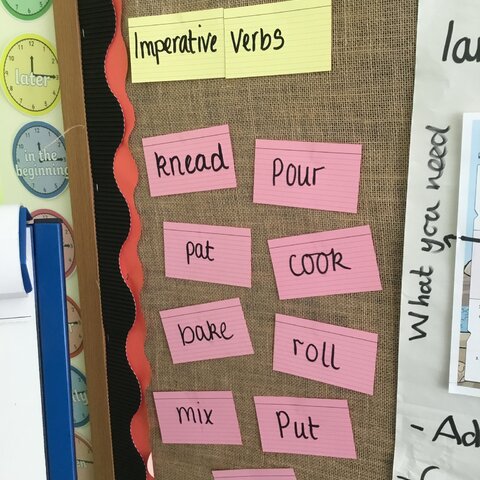 Imperative Verbs
knead
Pour
pat
cook
bake
roll
mix
Put
later
in the
beginning
What you need